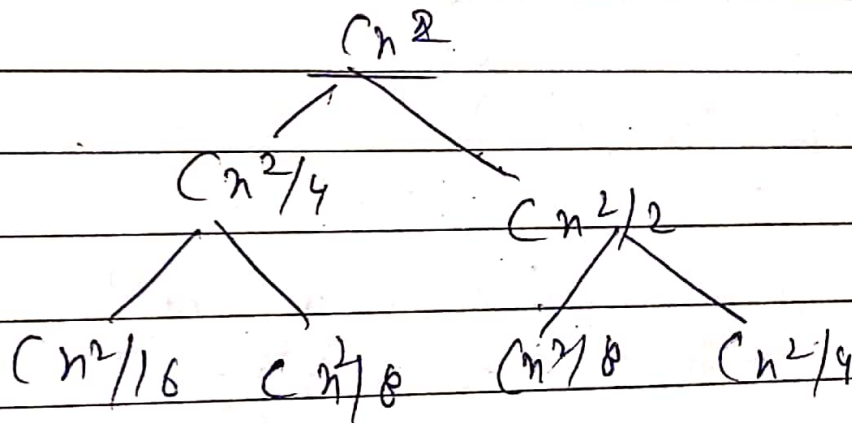 Cn²
Cn²/4
Cn²/2
Cn²/16 Cn²/8 Cn²/8 Cn²/4